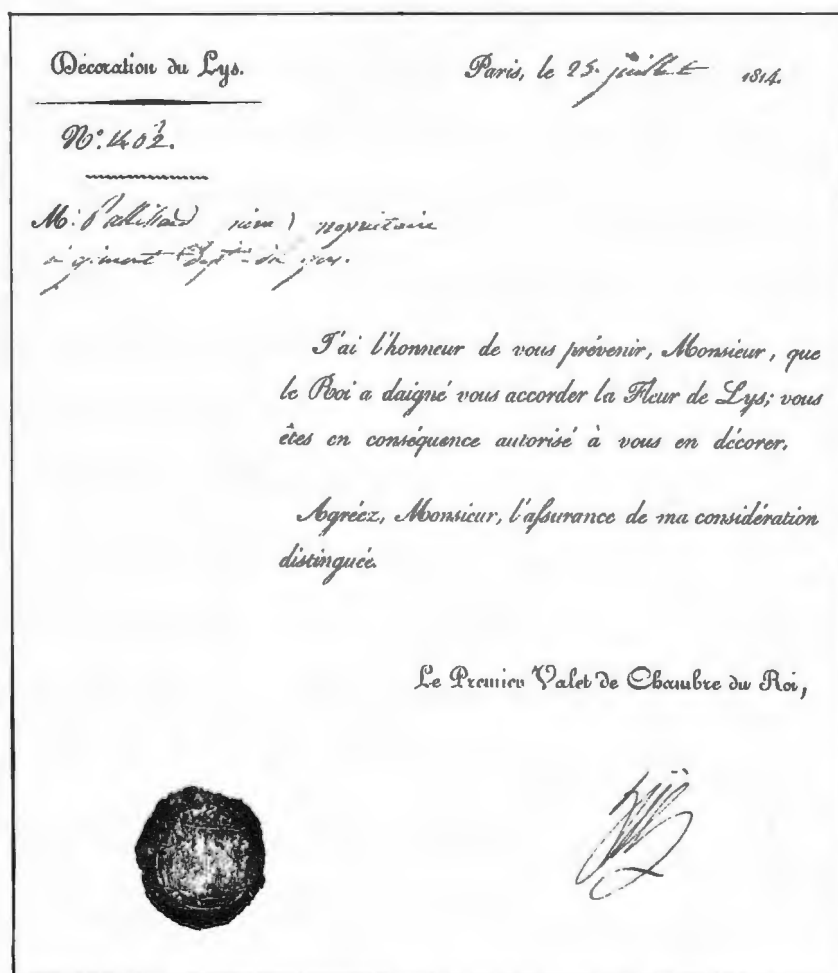 Décoration du Lys.
Paris, le 25 juillet 1814.
N.º 1402.
M.
J'ai l'honneur de vous prévenir, Monsieur, que
le Roi a daigné vous accorder la Fleur de Lys; vous
êtes en conséquence autorisé à vous en décorer.
Agréez, Monsieur, l'aſsurance de ma considération
distinguée.
Le Premier Valet de Chambre du Roi,